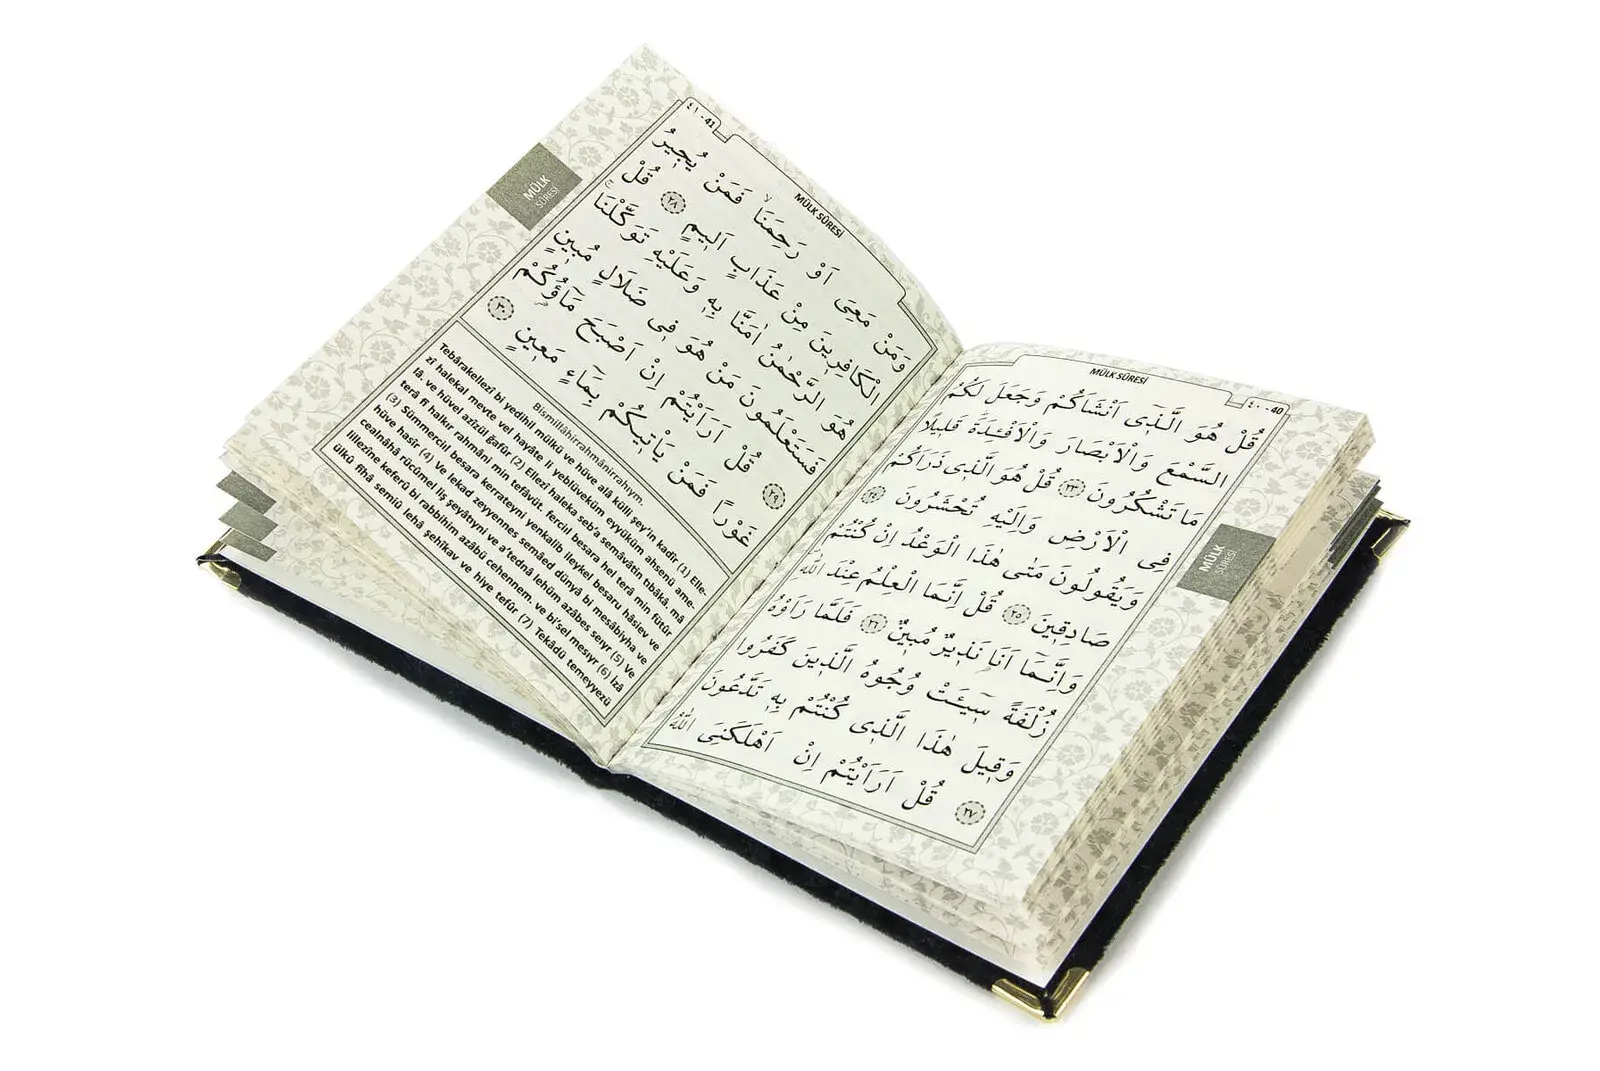 MÜLK SÛRESİ
٤٠ - 40
قُلْ هُوَ الَّذ۪ٓي اَنْشَاَكُمْ وَجَعَلَ لَكُمُ
السَّمْعَ وَالْاَبْصَارَ وَالْاَفْـِٔدَةَۜ قَل۪يلًا
مَا تَشْكُرُونَ ﴿٢٣﴾ قُلْ هُوَ الَّذ۪ي ذَرَاَكُمْ
فِي الْاَرْضِ وَاِلَيْهِ تُحْشَرُونَ ﴿٢٤﴾
وَيَقُولُونَ مَتٰى هٰذَا الْوَعْدُ اِنْ كُنْتُمْ
صَادِق۪ينَ ﴿٢٥﴾ قُلْ اِنَّمَا الْعِلْمُ عِنْدَ اللّٰهِ
وَاِنَّمَٓا اَنَا۬ نَذ۪يرٌ مُب۪ينٌ ﴿٢٦﴾ فَلَمَّا رَاَوْهُ
زُلْفَةً س۪ٓيـَٔتْ وُجُوهُ الَّذ۪ينَ كَفَرُوا
وَق۪يلَ هٰذَا الَّذ۪ي كُنْتُمْ بِه۪ تَدَّعُونَ
﴿٢٧﴾ قُلْ اَرَاَيْتُمْ اِنْ اَهْلَكَنِيَ اللّٰهُ
MÜLK
SÛRESİ
MÜLK SÛRESİ
٤١ - 41
وَمَنْ مَعِيَ اَوْ رَحِمَنَاۙ فَمَنْ يُج۪يرُ
الْكَافِر۪ينَ مِنْ عَذَابٍ اَل۪يمٍ ﴿٢٨﴾ قُلْ
هُوَ الرَّحْمٰنُ اٰمَنَّا بِه۪ وَعَلَيْهِ تَوَكَّلْنَاۚ
فَسَتَعْلَمُونَ مَنْ هُوَ ف۪ي ضَلَالٍ مُب۪ينٍ
﴿٢٩﴾ قُلْ اَرَاَيْتُمْ اِنْ اَصْبَحَ مَٓاؤُ۬كُمْ
غَوْرًا فَمَنْ يَأْت۪يكُمْ بِمَٓاءٍ مَع۪ينٍ ﴿٣٠﴾
Bismillâhirrahmânirrahıym.
Tebârakellezî bi yedihil mülkü ve hüve alâ külli şey'in kadîr (1) Elle-
zî halekal mevte vel hayâte li yeblüveküm eyyüküm ahsenü ame-
lâ, ve hüvel azîzül ğafûr (2) Ellezî haleka seb'a semâvâtin tıbâkâ, mâ
terâ fî halkır rahmâni min tefâvüt, ferciıl besara hel terâ min fütûr
(3) Sümmerciıl besara kerrateyni yenkalib ileykel besaru hâsiev ve
hüve hasîr (4) Ve lekad zeyyennes semâed dünyâ bi mesâbiyha ve
cealnâhâ rücûmel liş şeyâtıyni ve a'tednâ lehüm azâbes seiyr (5) Ve
lillezîne keferû bi rabbihim azâbü cehennem, ve bi'sel mesıyr (6) İzâ
ülkû fîhâ semiû lehâ şehîkav ve hiye tefûr (7) Tekâdü temeyyezü
MÜLK
SÛRESİ